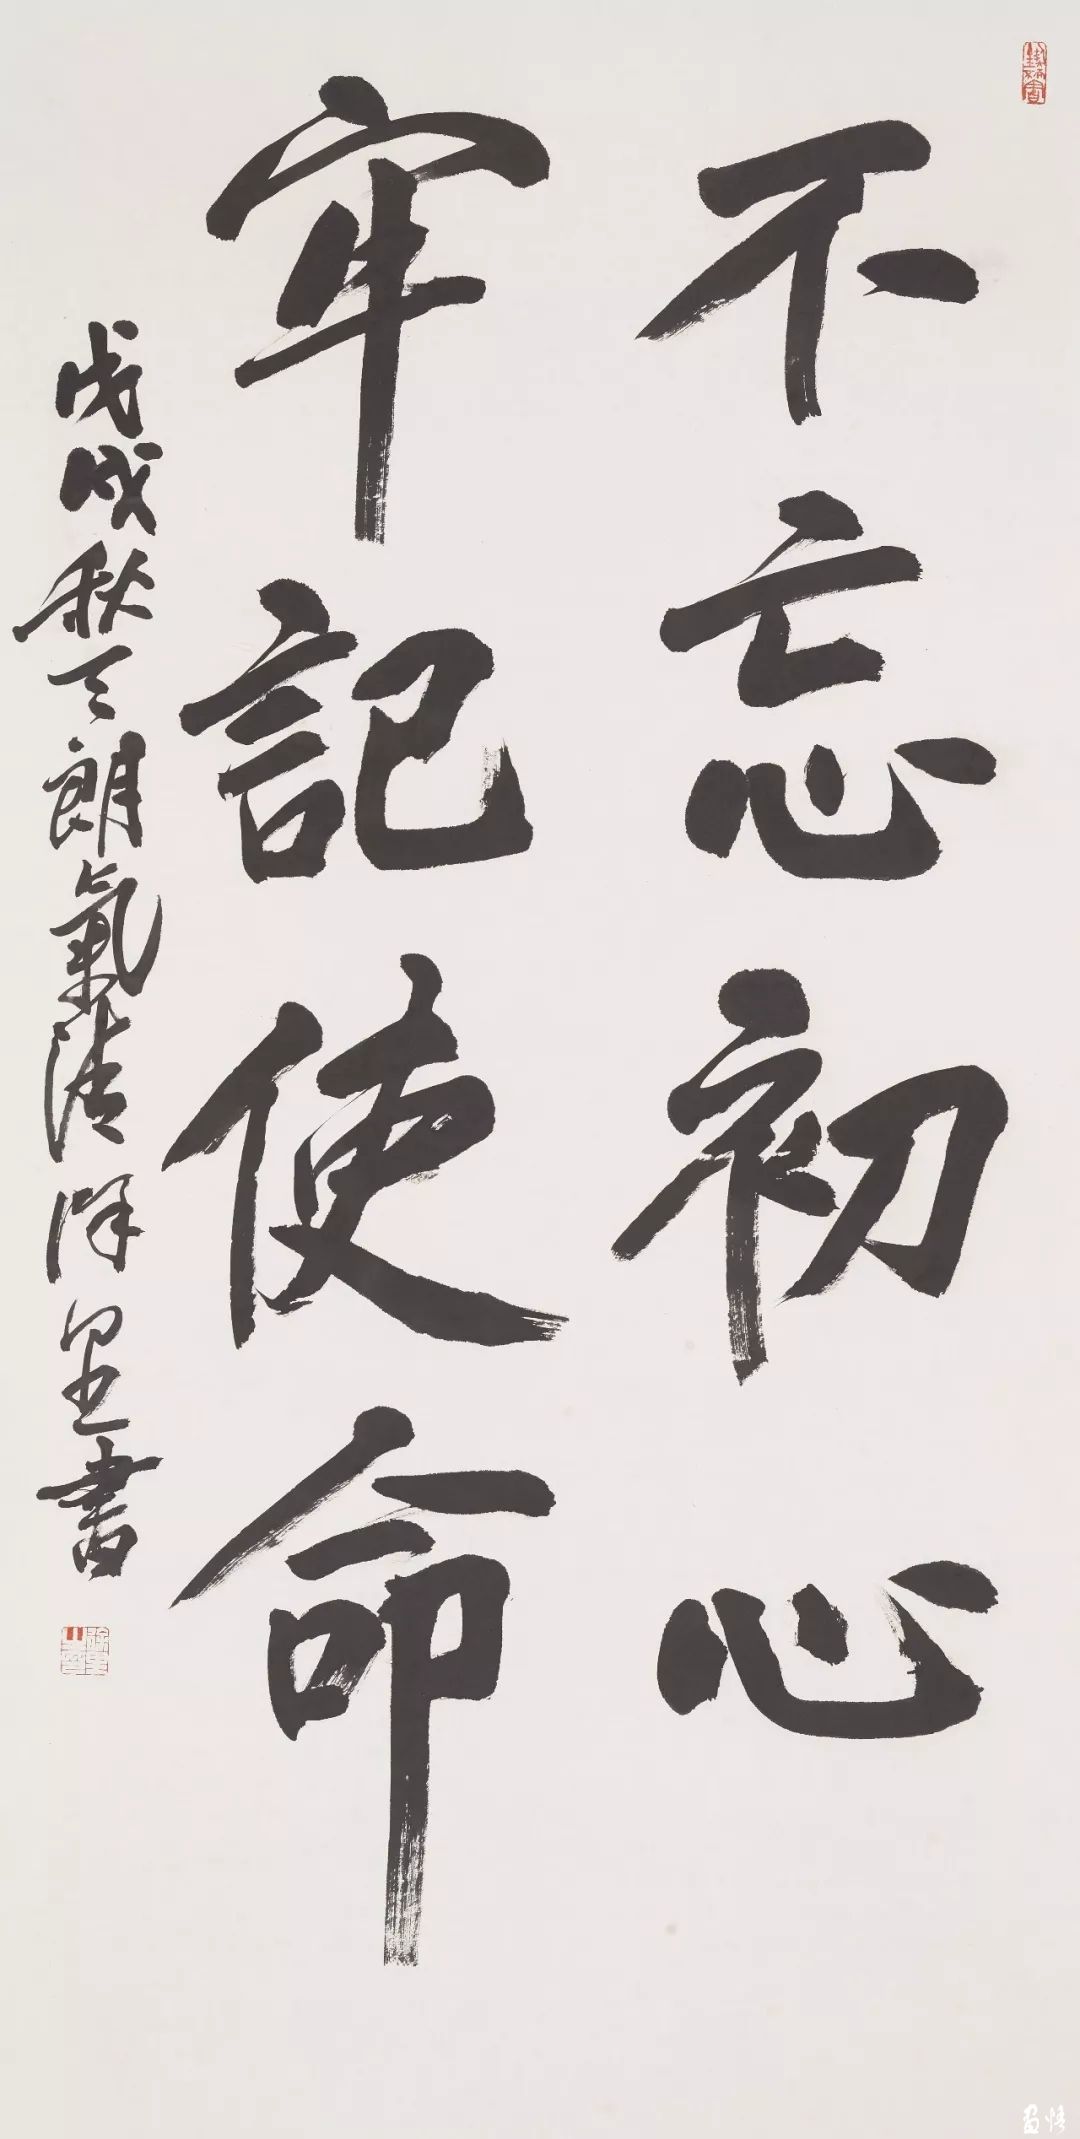 不忘初心
牢記使命
戊戌秋天朗氣清徐里書